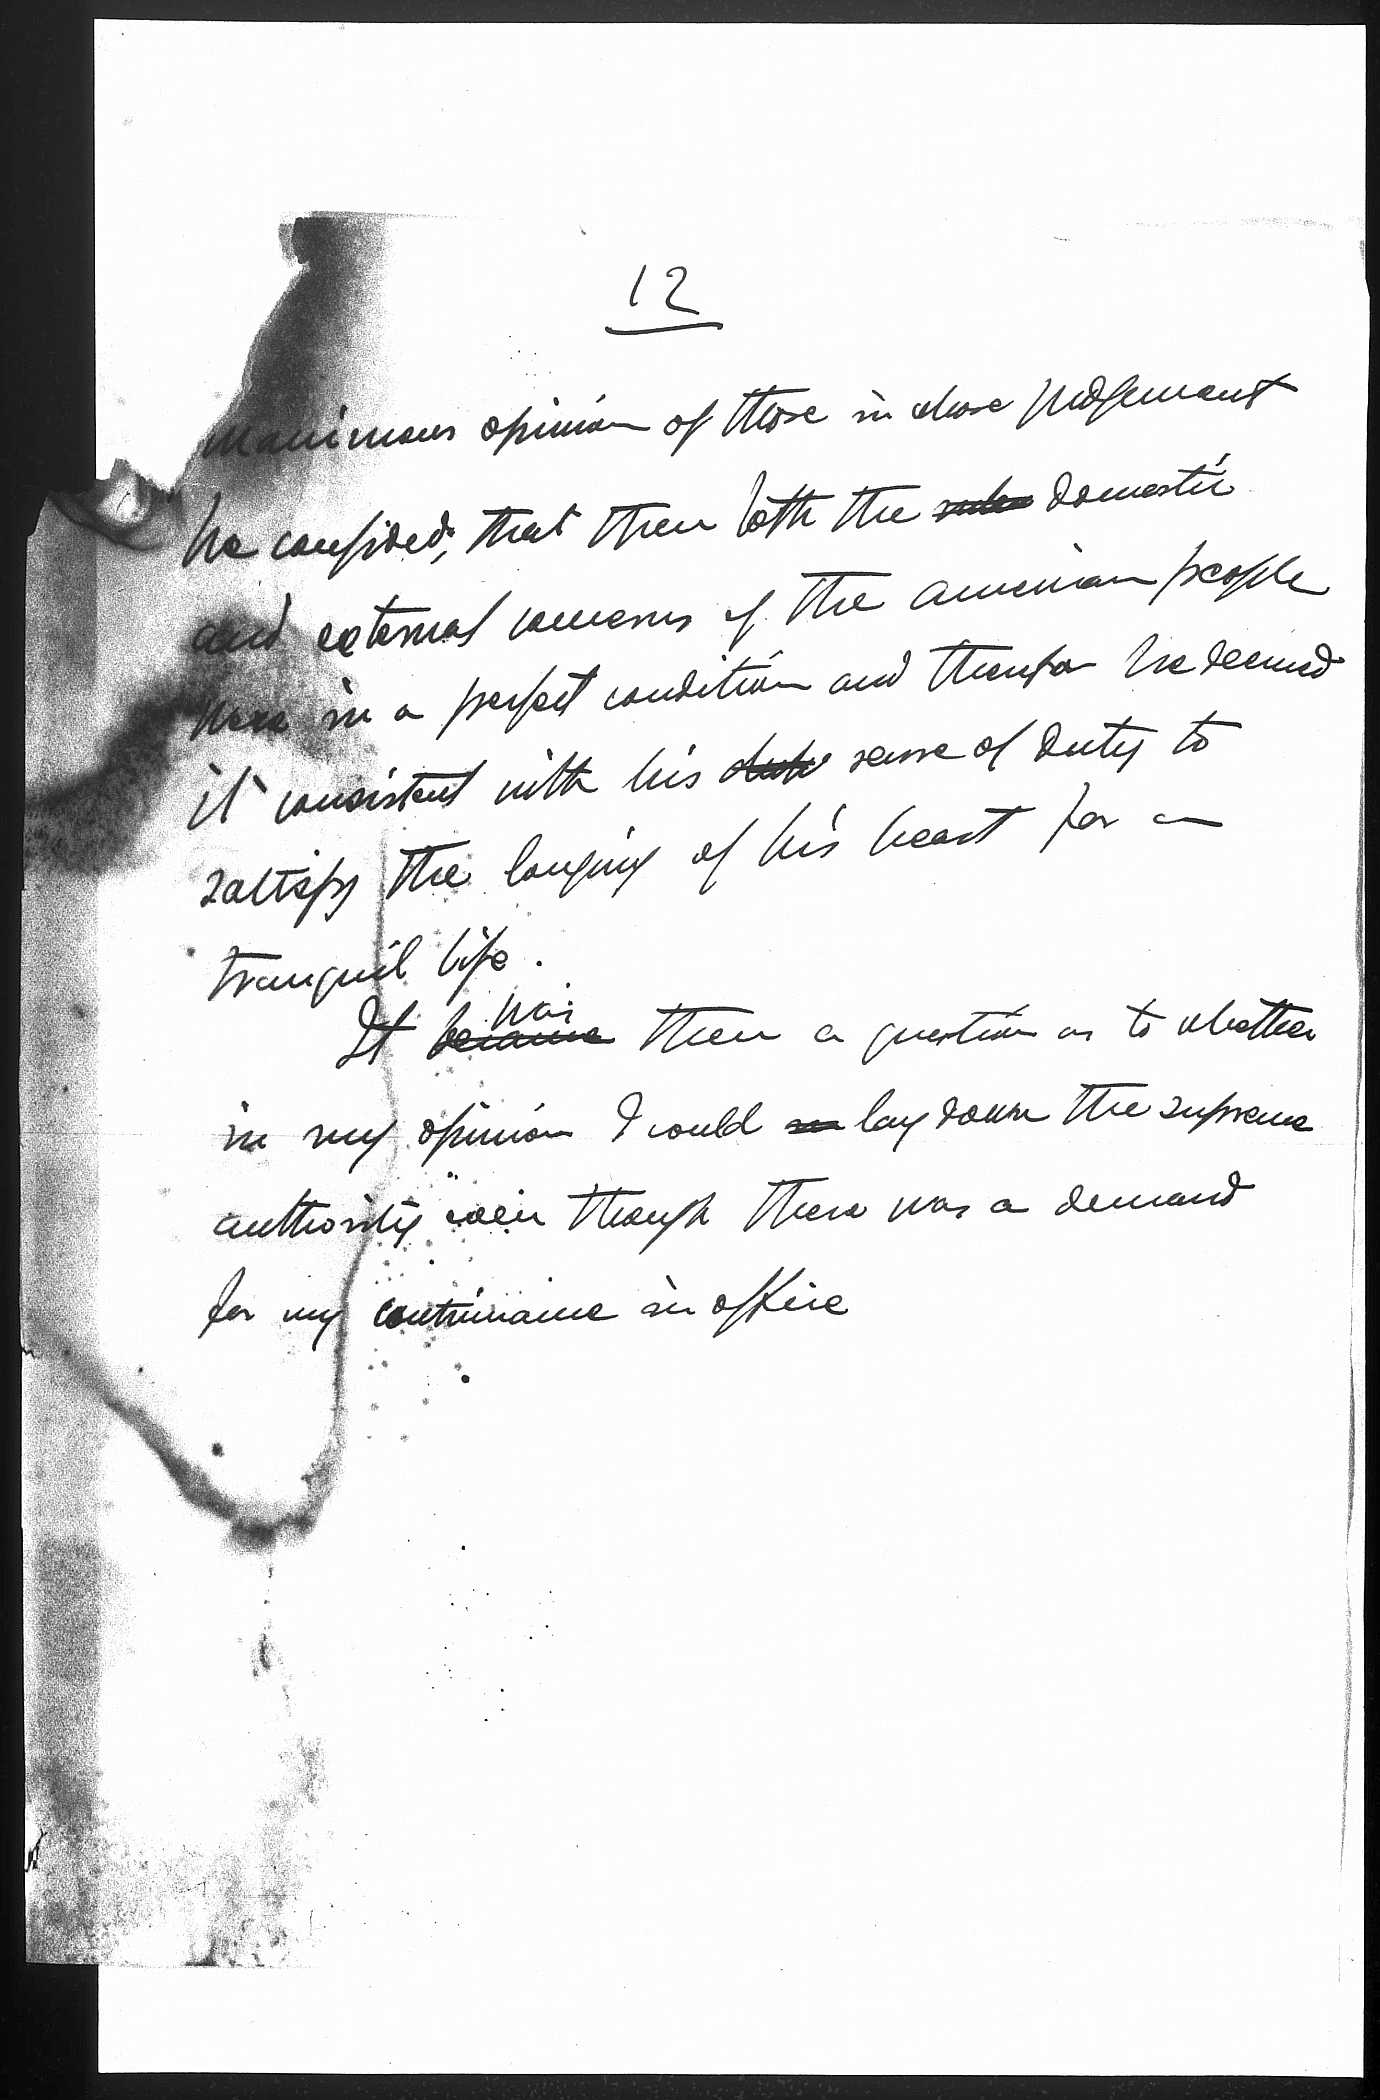 12
unanimous opinion of those in whose judgement
he confided, that then both the domestic
and external concerns of the American people
were in a perfect condition and therefor he deemed
it consistent with his sense of duty to
saltisfy the longing of his heart for a
tranquil life.
was
It became then a question as to whether
in my opinion I could lay down the supreme
authority even though there was a demand
for my continuance in office